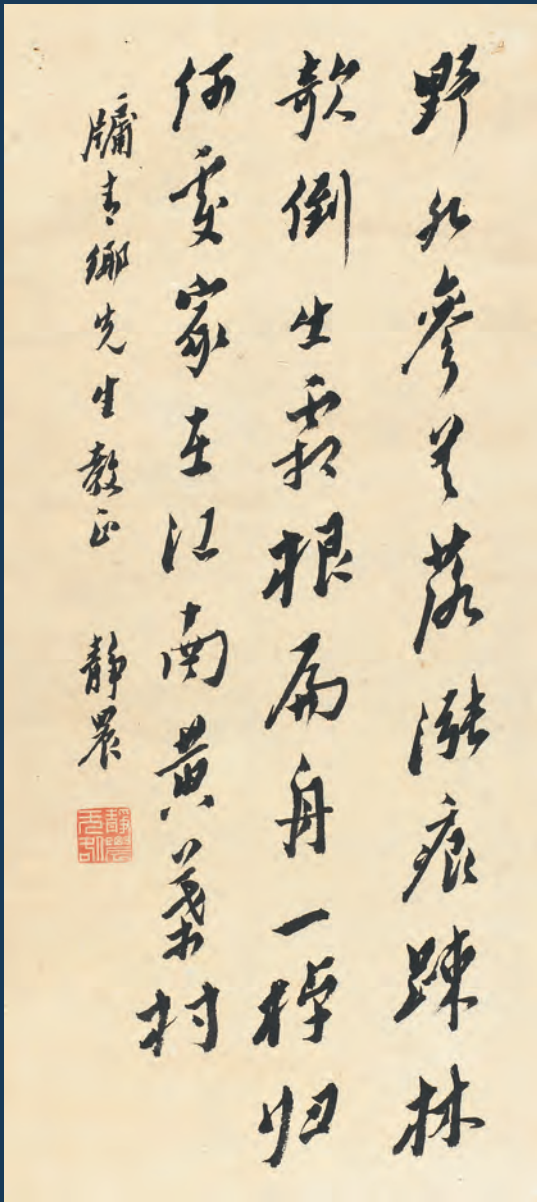 野水參差落漲痕疎林
欹倒出霜根扁舟一棹归
何處家在江南黃葉村
牗青鄉先生教正
靜農